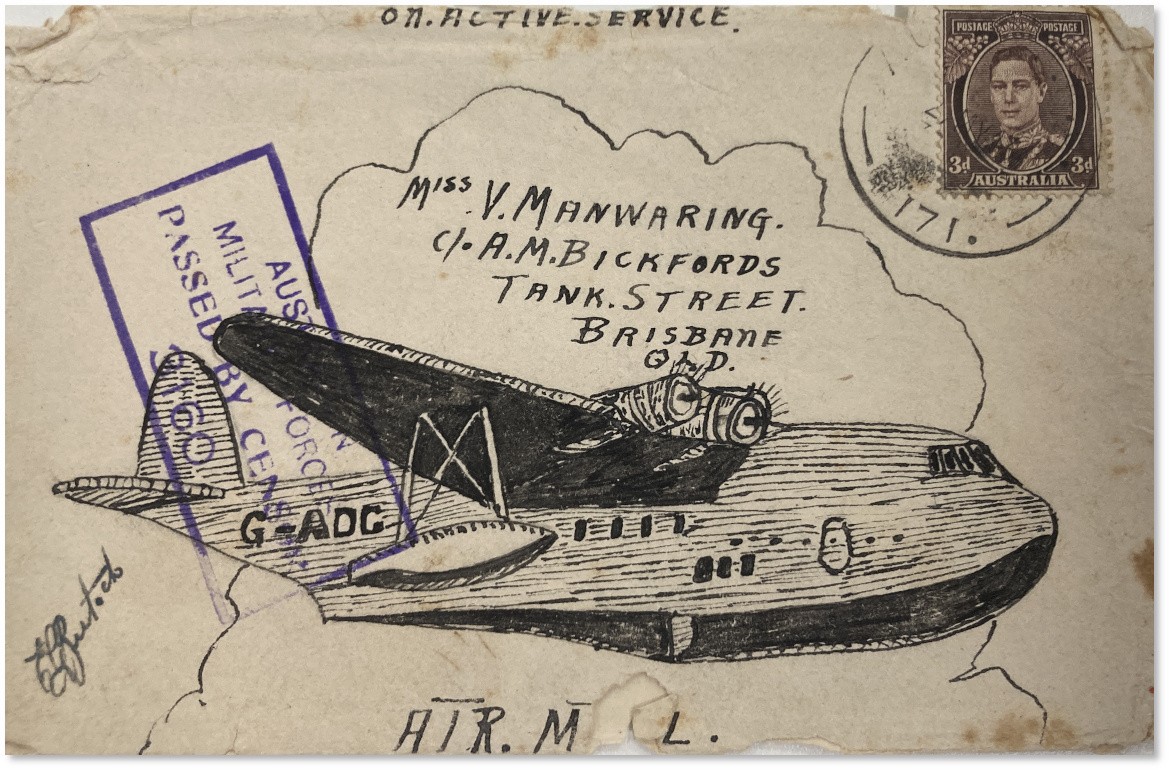 ON.ACTIVE.SERVICE.
POSTAGE POSTAGE
3d 3d
AUSTRALIA
171.
MISS V.MANWARING.
C/. A.M.BICKFORDS
TANK.STREET.
BRISBANE
QLD.
PASSED BY CENSOR
G-ADC
AIR.M L.